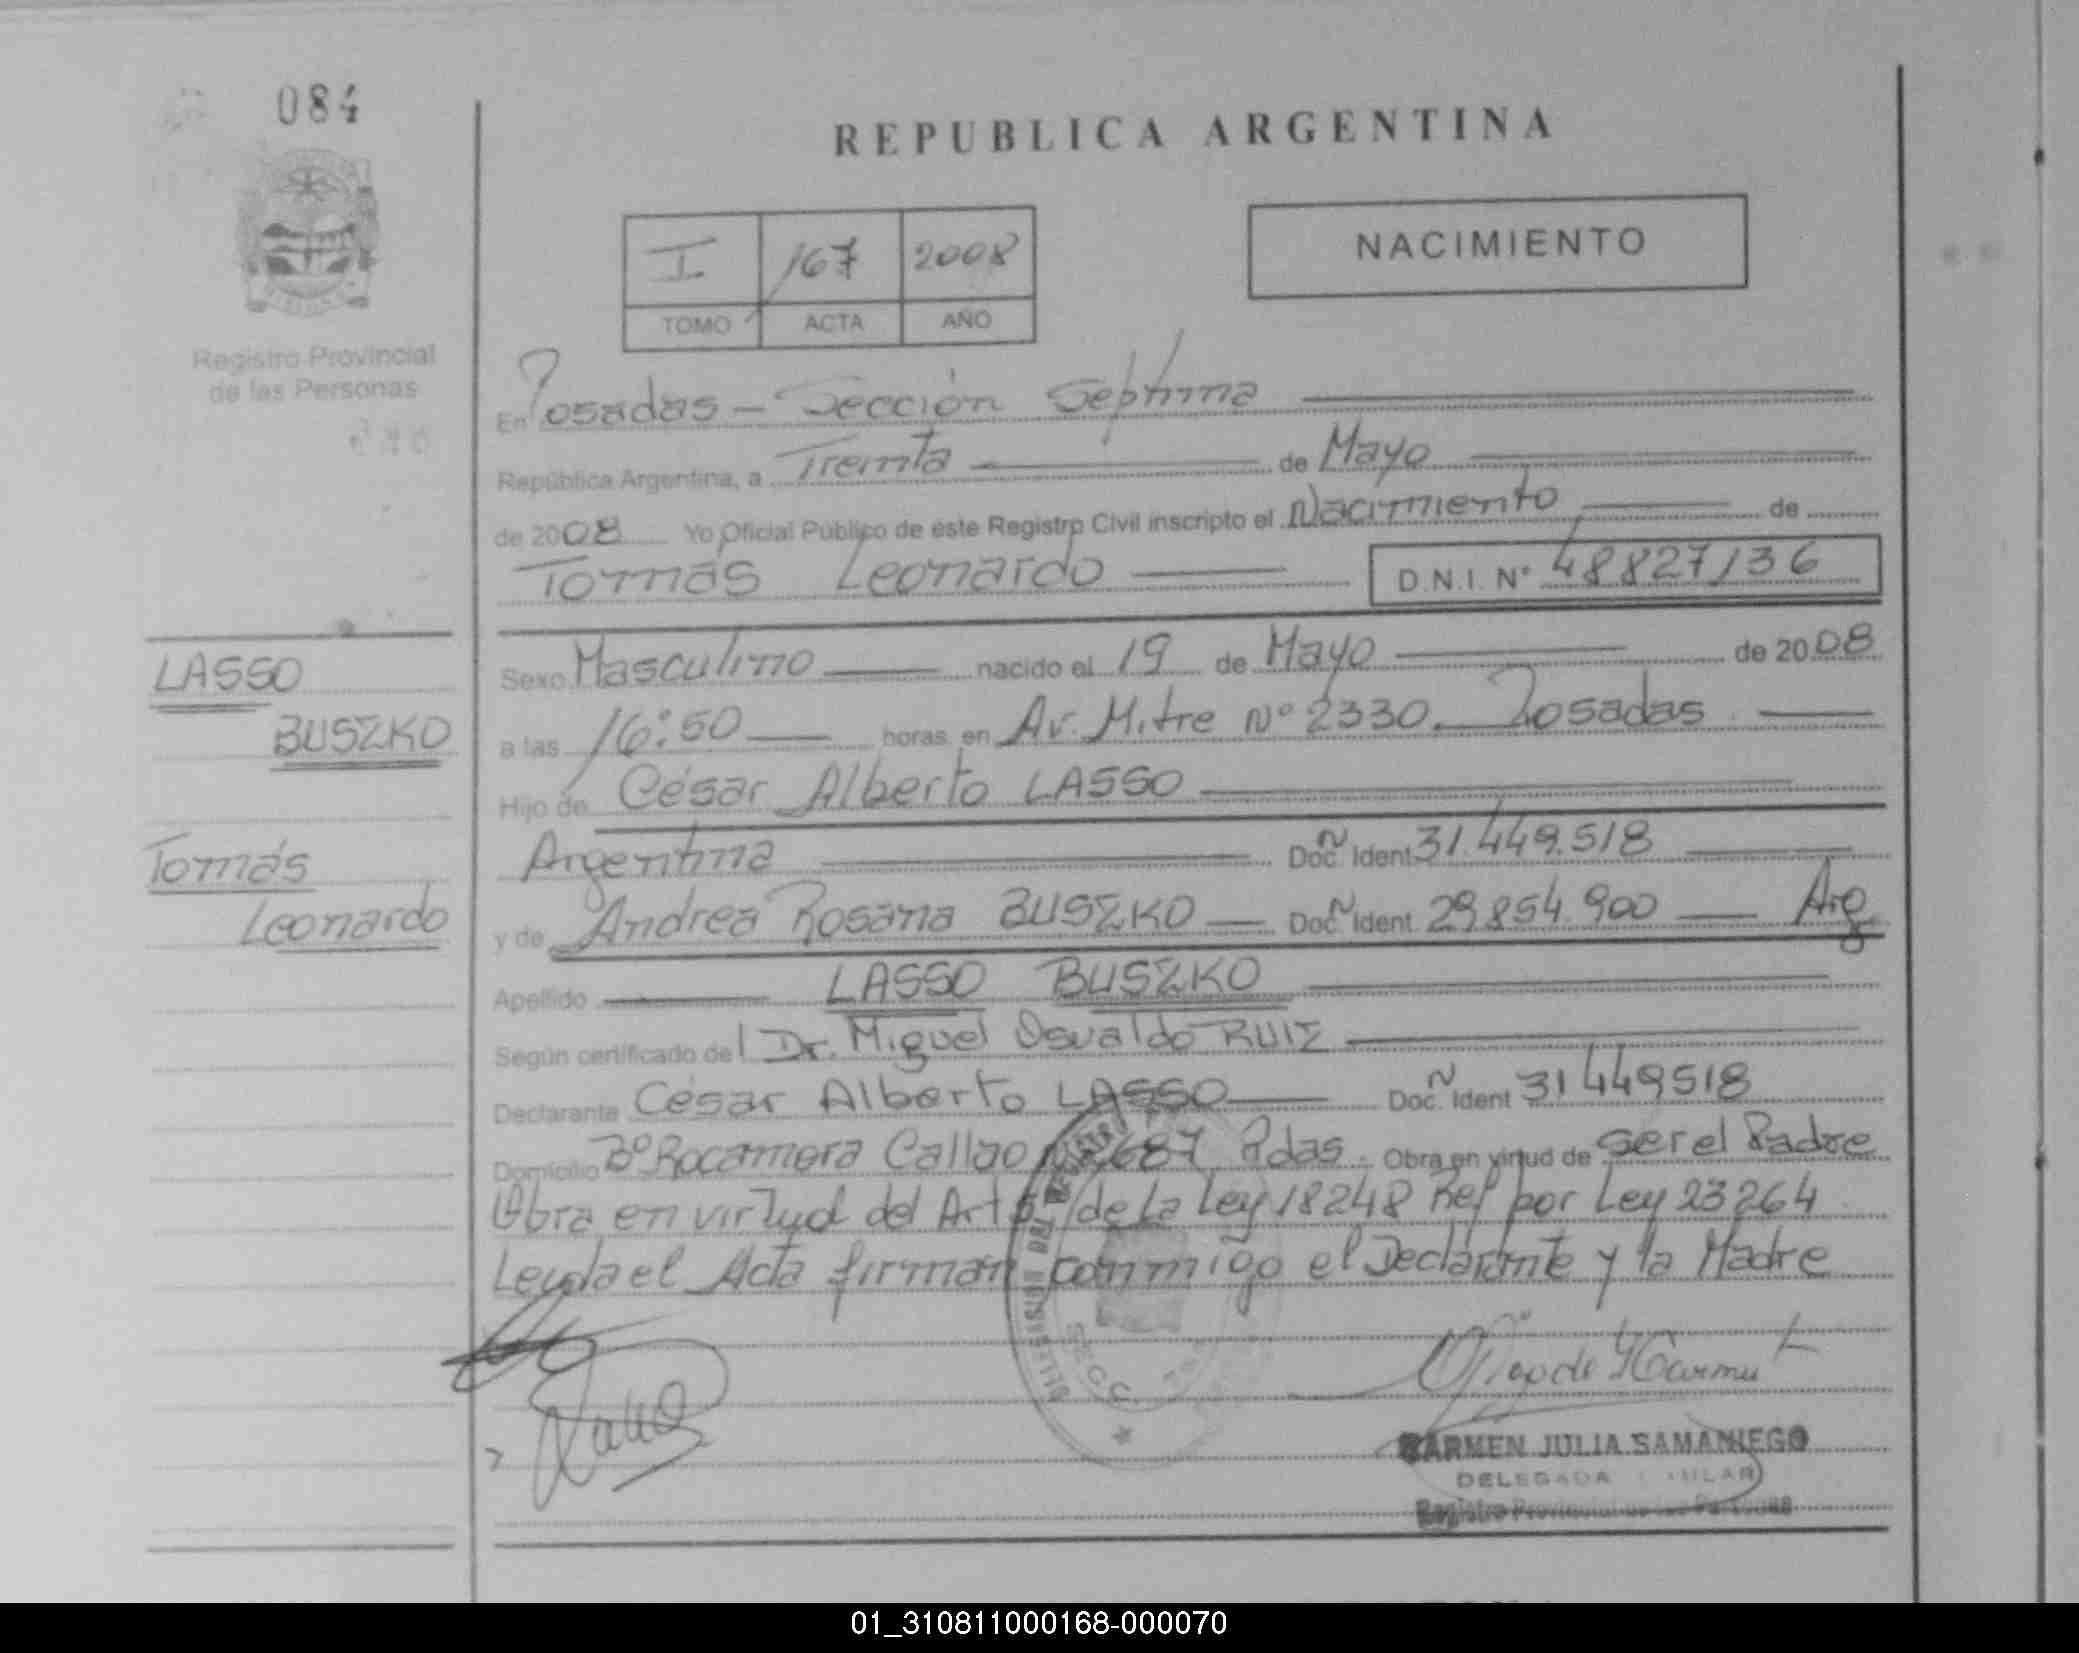 084
REPUBLICA ARGENTINA
I 167 2008
TOMO ACTA AÑO
NACIMIENTO
Registro Provincial
de las Personas
En Posadas - Sección Septima
República Argentina, a Treinta de Mayo
de 2008 Yo Oficial Público de este Registro Civil inscripto el Nacimiento de
Tomás Leonardo D.N.I. Nº 48827136
LASSO
BUSZKO
Tomás
Leonardo
Sexo Masculino nacido el 19 de Mayo de 2008
a las 16:50 horas en Av. Mitre Nº 2330. Posadas
Hijo de César Alberto LASSO
Argentina Doc. Ident 31.449.518
y de Andrea Rosana BUSZKO Doc. Ident 29.854.900 Arg
Apellido LASSO BUSZKO
Según certificado del Dr. Miguel Osvaldo RUIZ
Declarante César Alberto LASSO Doc. Ident 31449518
Domicilio Bº Rocamora Callao 2687 Pdas. Obra en virtud de ser el Padre
Obra en virtud del Art de la Ley 18248 Ref por Ley 23264
Leyda el Acta firman conmigo el Declarante y la Madre
CARMEN JULIA SAMANIEGO
DELEGADA TITULAR
Registro Provincial de las Personas
01_310811000168-000070